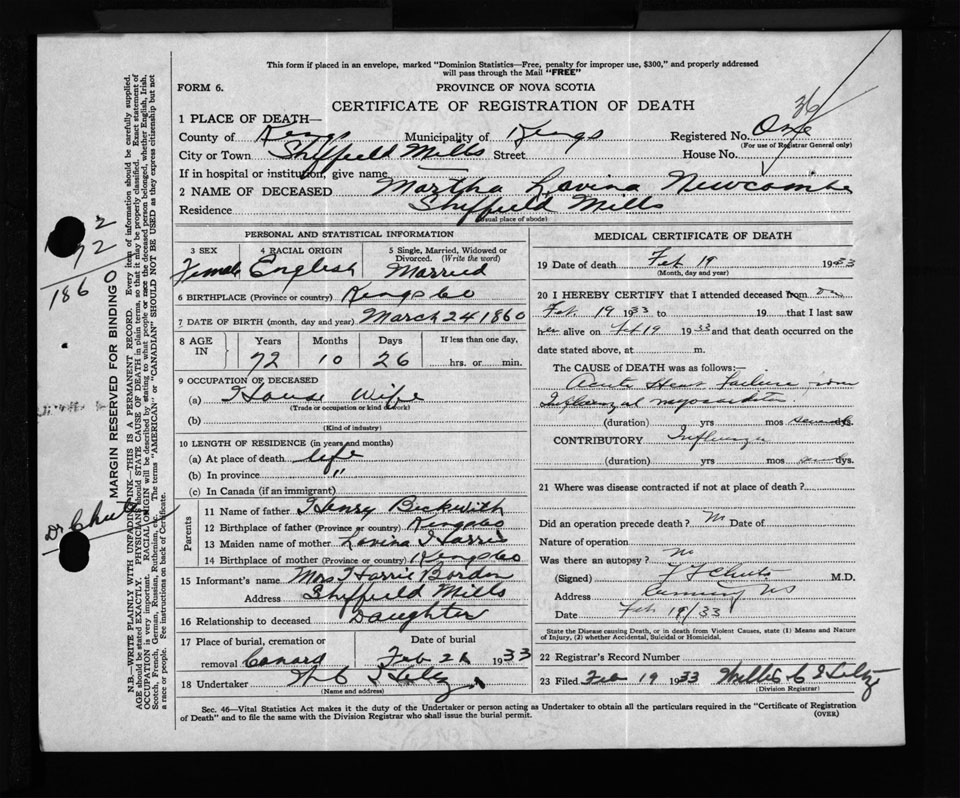 This form if placed in an envelope, marked "Dominion Statistics—Free, penalty for improper use, $300," and properly addressed
will pass through the Mail "FREE"
FORM 6.
PROVINCE OF NOVA SCOTIA
CERTIFICATE OF REGISTRATION OF DEATH
36
1 PLACE OF DEATH—
County of Kings Municipality of Kings Registered No. One
(For use of Registrar General only)
City or Town Sheffield Mills Street House No.
If in hospital or institution, give name
2 NAME OF DECEASED Martha Lavina Newcombe
Residence Sheffield Mills
(Usual place of abode)
PERSONAL AND STATISTICAL INFORMATION
3 SEX 4 RACIAL ORIGIN 5 Single, Married, Widowed or Divorced. (Write the word)
Female English Married
6 BIRTHPLACE (Province or country) Kings Co
7 DATE OF BIRTH (month, day and year) March 24 1860
8 AGE IN Years Months Days If less than one day,
72 10 26 hrs. or min.
9 OCCUPATION OF DECEASED
(a) House Wife
(Trade or occupation or kind of work)
(b)
(Kind of industry)
10 LENGTH OF RESIDENCE (in years and months)
(a) At place of death life
(b) In province "
(c) In Canada (if an immigrant)
Parents
11 Name of father Henry Beckwith
12 Birthplace of father (Province or country) Kings Co
13 Maiden name of mother Lavina Harris
14 Birthplace of mother (Province or country) Kings Co
15 Informant's name Mrs Harris Borden
Address Sheffield Mills
16 Relationship to deceased Daughter
17 Place of burial, cremation or Date of burial
removal Canard Feb 21 1933
18 Undertaker
(Name and Address)
MEDICAL CERTIFICATE OF DEATH
19 Date of death Feb 19 1933
(Month, day and year)
20 I HEREBY CERTIFY that I attended deceased from on
Feb. 19 1933 to 19 that I last saw
her alive on Feb 19 1933 and that death occurred on the
date stated above, at m.
The CAUSE of DEATH was as follows:—
Acute Heart Failure from
Influenzal myocarditis.
(duration) yrs mos dys.
CONTRIBUTORY Influenza
(duration) yrs mos dys.
21 Where was disease contracted if not at place of death?
Did an operation precede death? No Date of
Nature of operation
Was there an autopsy? No
(Signed) Chute M.D.
Address Canning NS
Date Feb 19/33
State the Disease causing Death, or in death from Violent Causes, state (1) Means and Nature
of Injury, (2) whether Accidental, Suicidal or Homicidal.
22 Registrar's Record Number
23 Filed Feb 19 1933 Willis C
(Division Registrar)
Sec. 46—Vital Statistics Act makes it the duty of the Undertaker or person acting as Undertaker to obtain all the particulars required in the "Certificate of Registration
of Death" and to file the same with the Division Registrar who shall issue the burial permit.
(OVER)
2
72
1860
Dr Chute
MARGIN RESERVED FOR BINDING
N.B.—WRITE PLAINLY WITH UNFADING INK—THIS IS A PERMANENT RECORD. Every item of information should be carefully supplied.
AGE should be stated EXACTLY. PHYSICIANS should STATE CAUSE OF DEATH in plain terms, so that it may be properly classified. Exact statement of
OCCUPATION is very important. RACIAL ORIGIN will be described by stating to what people or race the deceased person belonged, whether English, Irish,
Scotch, French, German, Russian, Ruthenian, etc. The terms "AMERICAN" or "CANADIAN" SHOULD NOT BE USED as they express citizenship but not
a race or people. See instructions on back of Certificate.